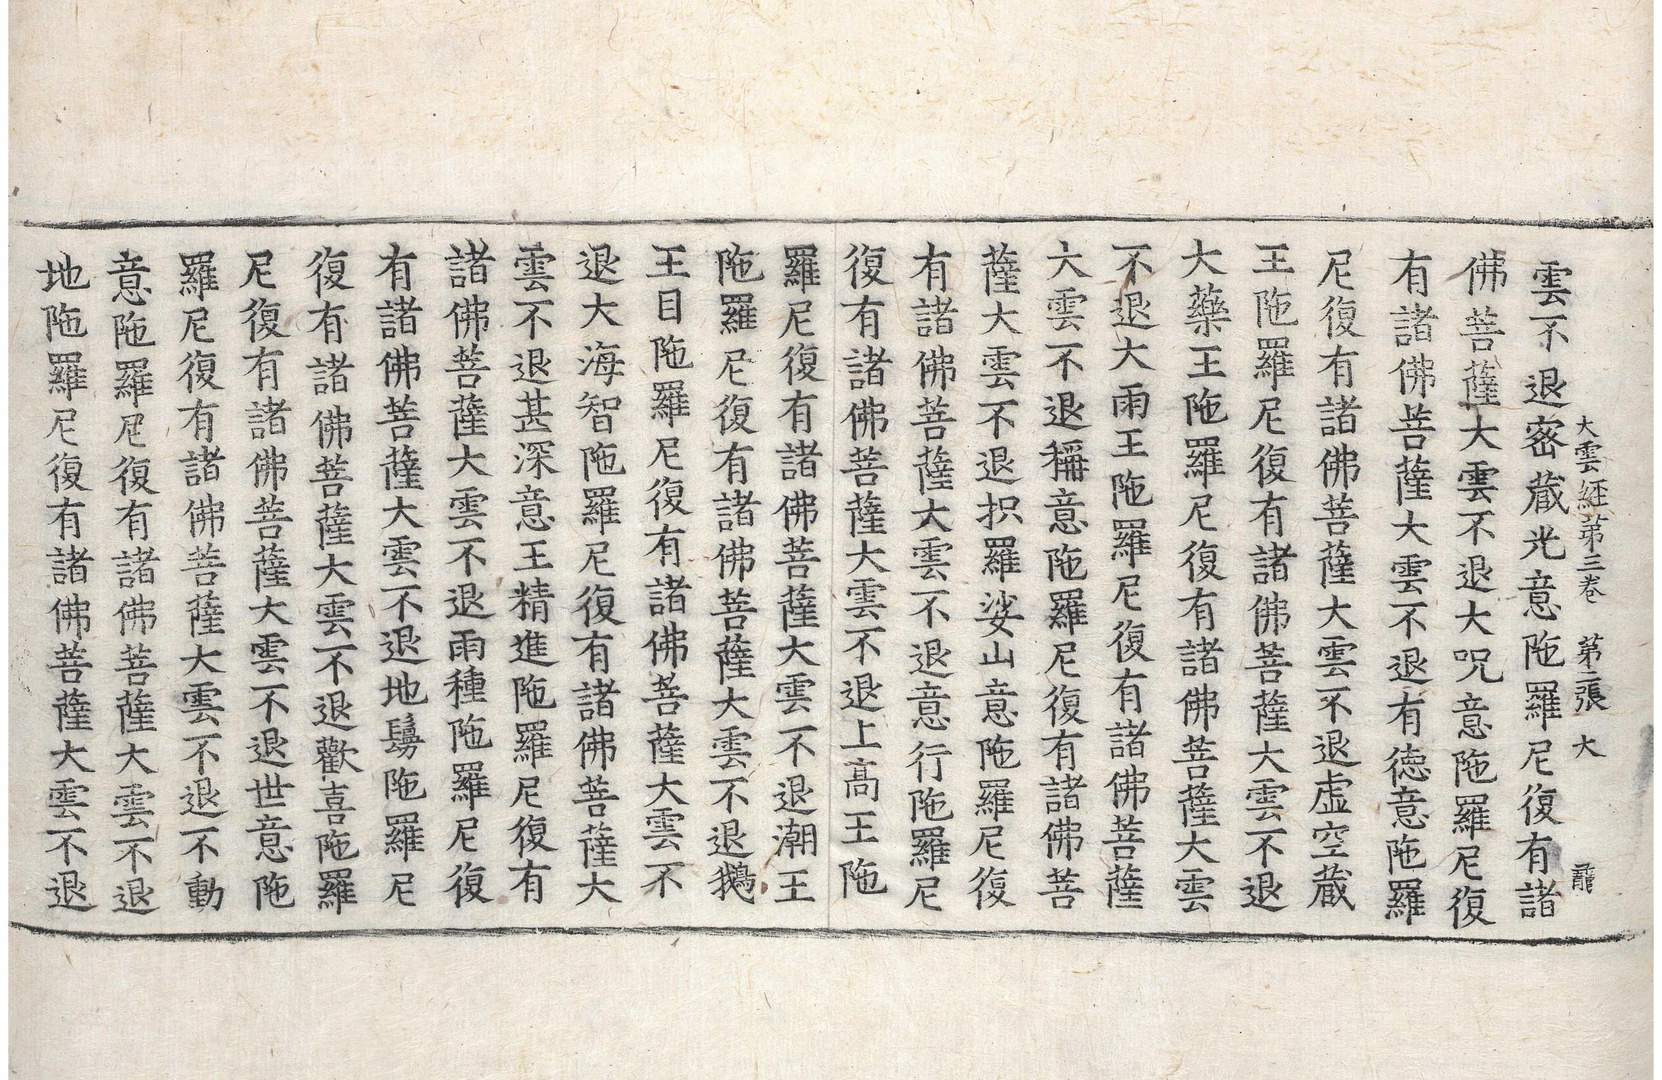 大雲經第三卷　第二張　大　龍
雲不退密藏光意陁羅尼復有諸
佛菩薩大雲不退大呪意陁羅尼復
有諸佛菩薩大雲不退有德意陁羅
尼復有諸佛菩薩大雲不退虛空藏
王陁羅尼復有諸佛菩薩大雲不退
大藥王陁羅尼復有諸佛菩薩大雲
不退大雨王陁羅尼復有諸佛菩薩
大雲不退稱意陁羅尼復有諸佛菩
薩大雲不退抧羅娑山意陁羅尼復
有諸佛菩薩大雲不退意行陁羅尼
復有諸佛菩薩大雲不退上高王陁
羅尼復有諸佛菩薩大雲不退潮王
陁羅尼復有諸佛菩薩大雲不退鵝
王目陁羅尼復有諸佛菩薩大雲不
退大海智陁羅尼復有諸佛菩薩大
雲不退甚深意王精進陁羅尼復有
諸佛菩薩大雲不退雨種陁羅尼復
有諸佛菩薩大雲不退地鬘陁羅尼
復有諸佛菩薩大雲不退歡喜陁羅
尼復有諸佛菩薩大雲不退世意陁
羅尼復有諸佛菩薩大雲不退不動
意陁羅尼復有諸佛菩薩大雲不退
地陁羅尼復有諸佛菩薩大雲不退